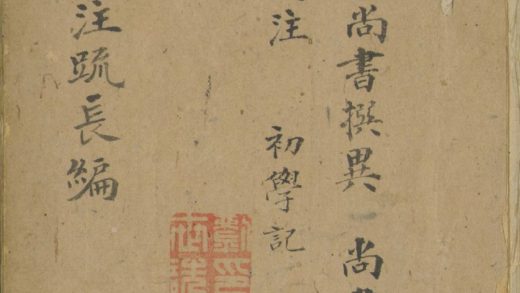 尚書撰異 尚
注 初學記
注疏長編